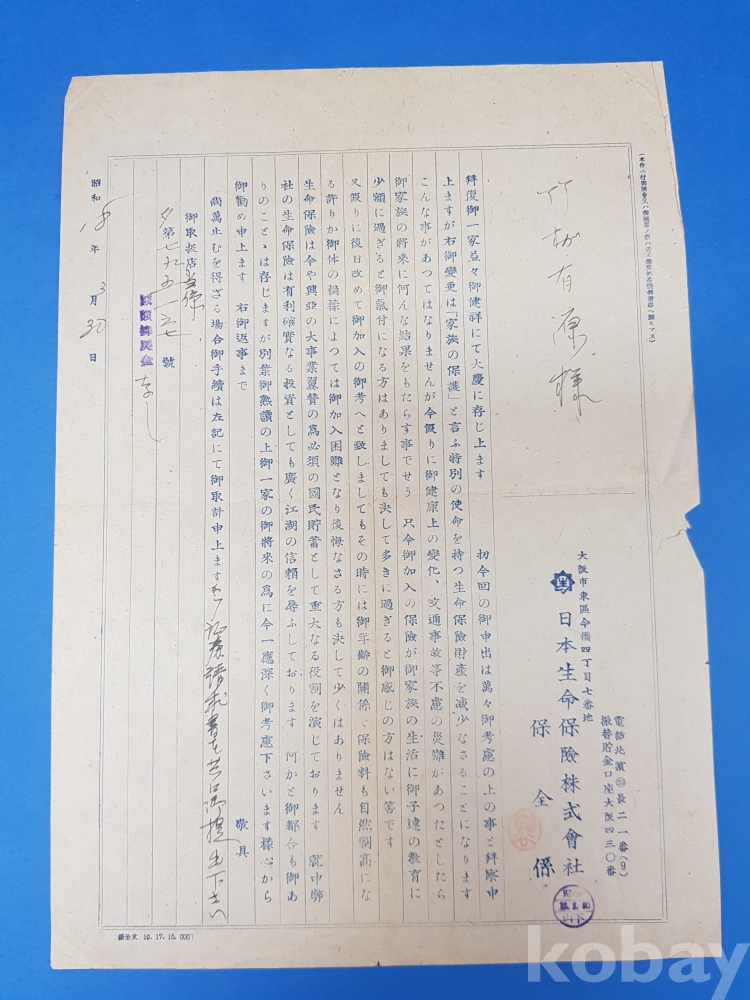 (本件ニ付御照會又ハ御返事ノ際ハ必ズ御面倒ナガラ此ノ書面御添ヘ願ヒマス)
竹村有源様
大阪市東區今橋四丁目七番地
日本生命保險株式會社
保全係
電話北濱㉓長二一番(9)
振替貯金口座大阪四三〇番
拜復御一家益々御健祥にて大慶に存じ上ます 扨今回の御申出は萬々御考慮の上の事と拜察申
上ますが右御變更は「家族の保護」と言ふ特別の使命を持つ生命保險財產を減少なさることになります
こんな事があつてはなりませんが今假りに御健康上の變化、交通事故等不慮の災難があつたとしたら
御家族の將來に何んな結果をもたらす事でせう 只今御加入の保險が御家族の生活に御子達の敎育に
少額に過ぎると御氣付になる方はありましても決して多きに過ぎると御感じの方はない筈です
又假りに後日改めて御加入の御考へと致しましてもその時には御年齡の關係で保險料も自然割高にな
る許りか御体の模樣によつては御加入困難となり後悔なさる方も決して少くはありません
生命保險は今や興亞の大事業翼賛の爲必須の國民貯蓄として重大なる役割を演じております 就中弊
社の生命保險は有利確實なる投資としても廣く江湖の信賴を辱ふしております 何かと御都合も御あ
りのことゝは存じますが別葉御熟讀の上御一家の御將來の爲に今一應深く御考慮下さいます樣心から
御勸め申上ます 右御返事まで 敬具
尚萬止むを得ざる場合御手續は左記にて御取計申上ますから
御取扱店
第七九五一六七號
昭和18年3月30日
(保全文 10. 17. 15. 000)
kobay